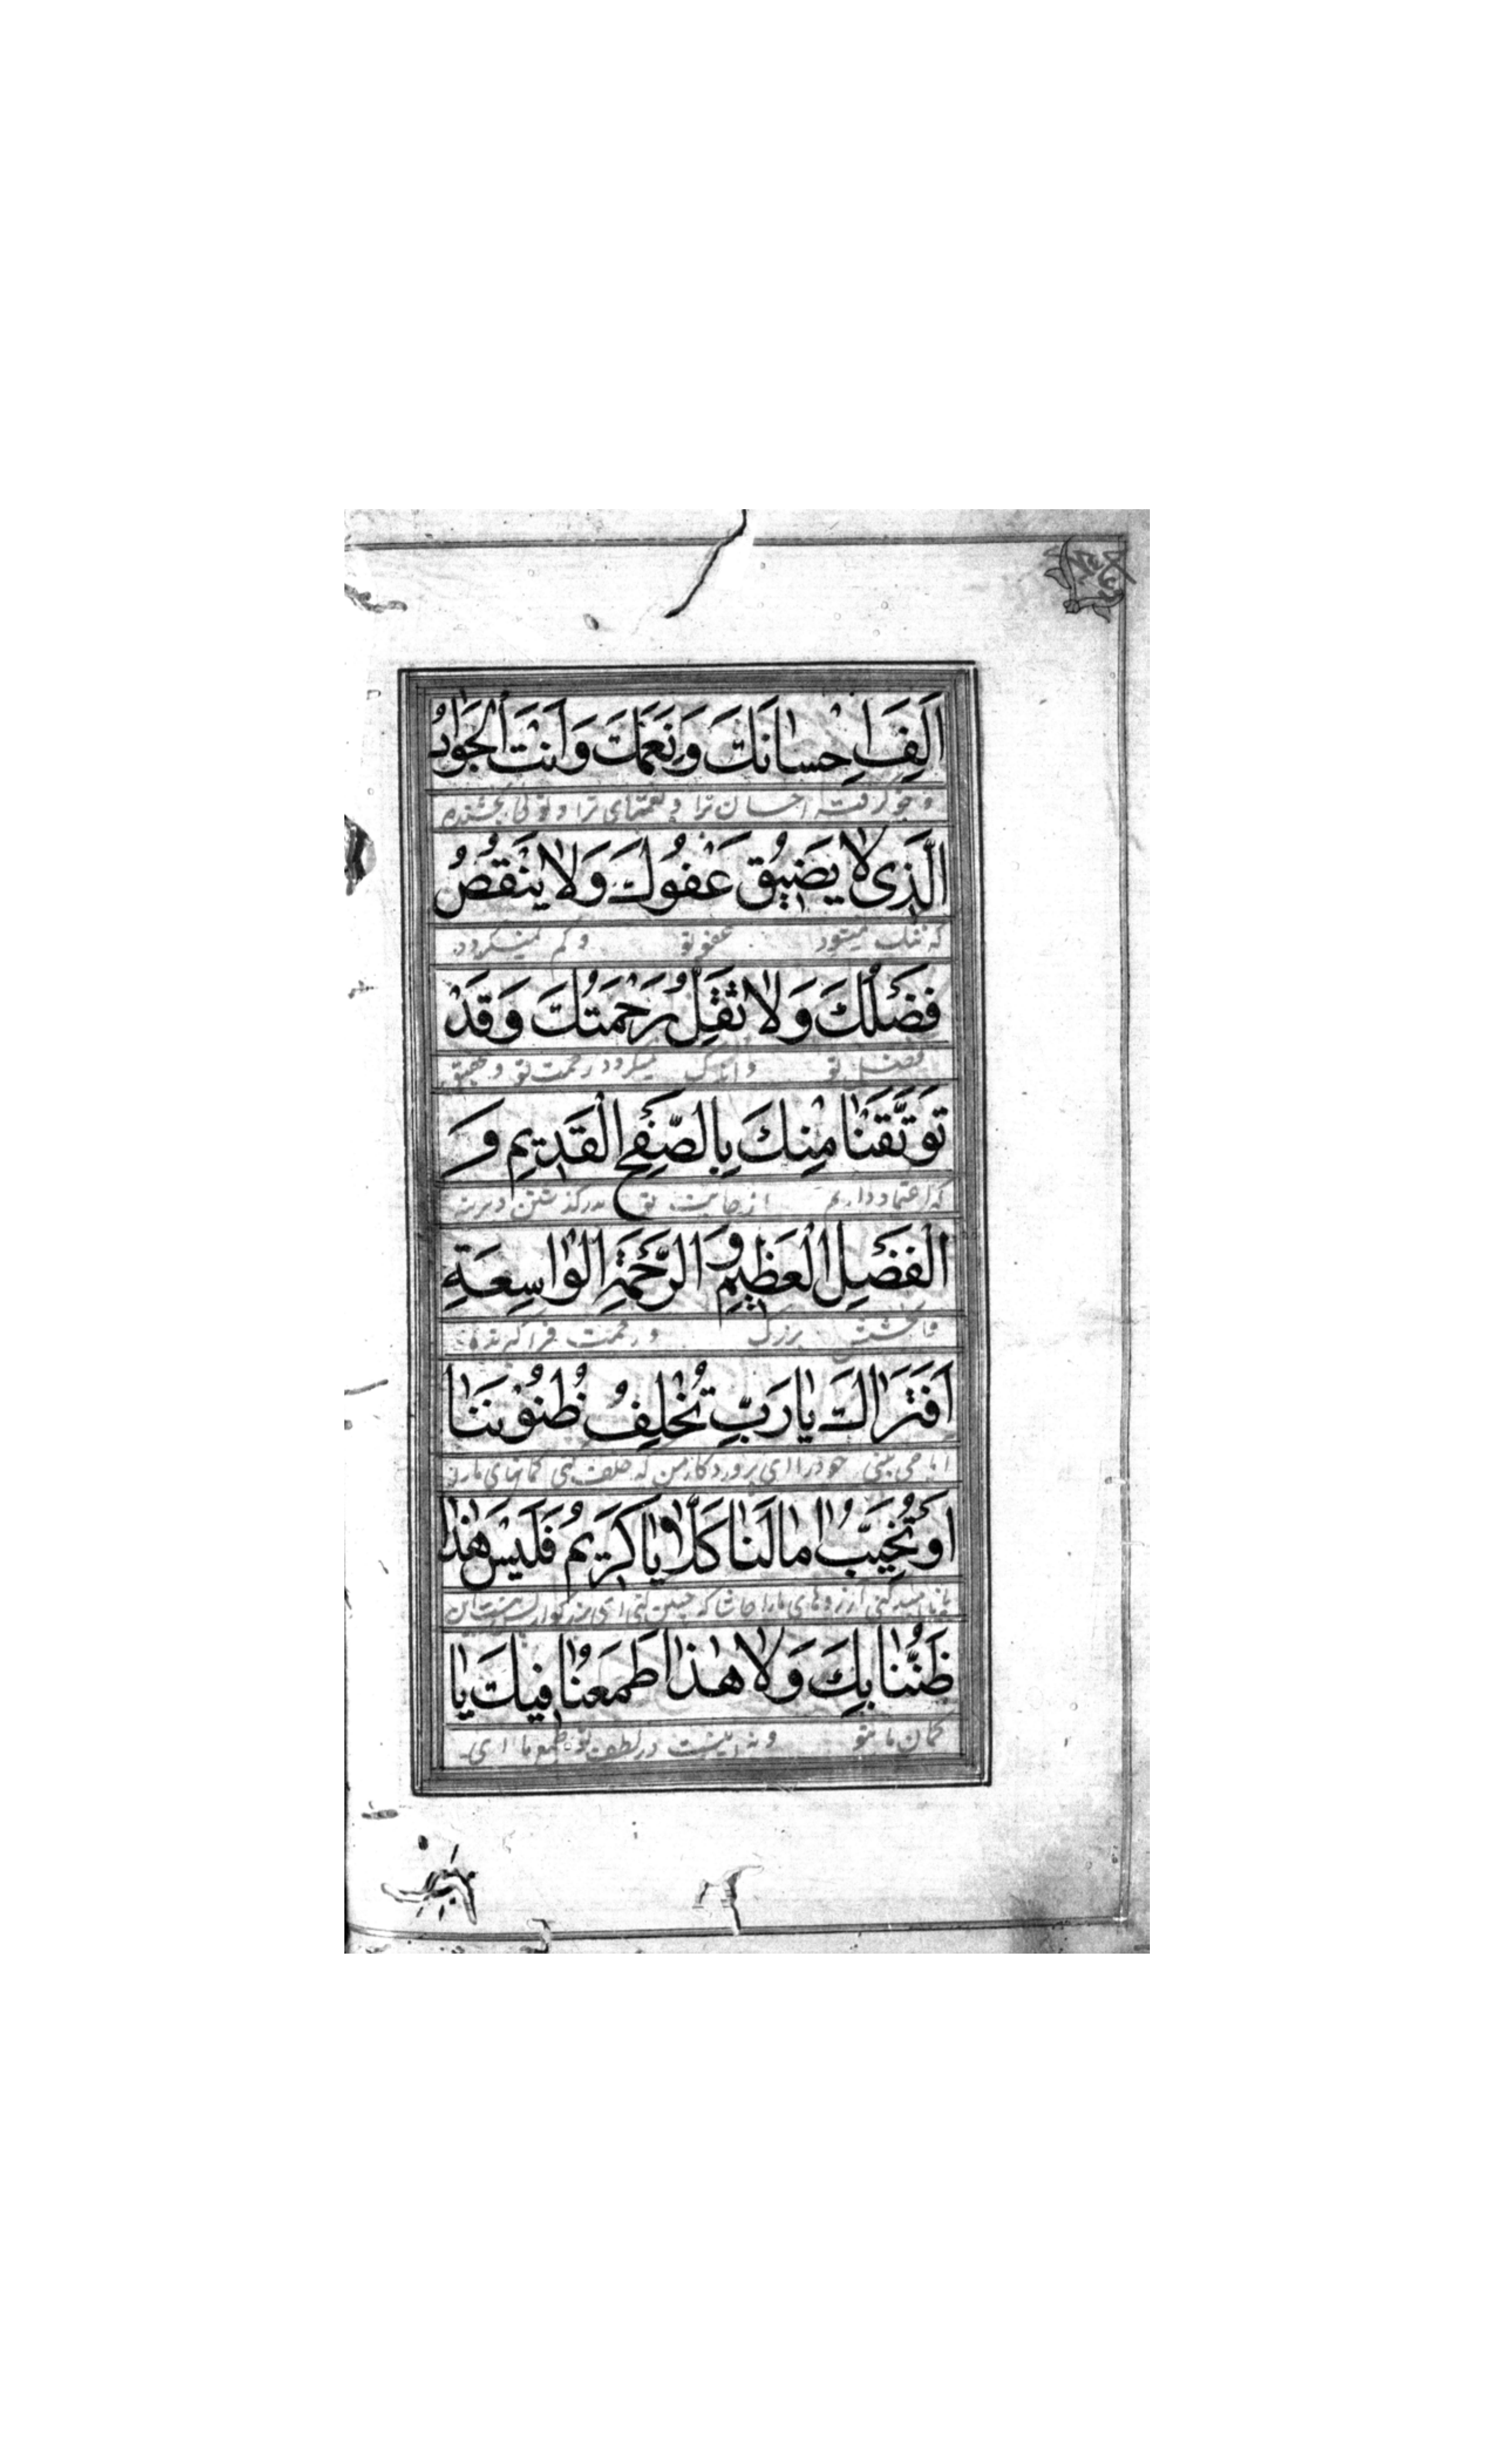 اَلِفَ اِحْسانَكَ وَنِعَمَكَ وَاَنْتَ الْجَوادُ
و خو گرفته احسان ترا و نعمتهای ترا و توئی بخشنده
الَّذى لا يَضيقُ عَفْوُكَ وَلا يَنْقُصُ
که تنک نمیشود عفو تو و کم نمیکردد
فَضْلُكَ وَلا تَقِلُّ رَحْمَتُكَ وَقَدْ
فضل تو و اندک نمیکردد رحمت تو و بتحقیق
تَوَثَّقْنا مِنْكَ بِالصَّفْحِ الْقَديمِ وَ
که اعتماد داریم از جانب تو بدرکذشتن دیرینه
الْفَضْلِ الْعَظيمِ وَ الرَّحْمَةِ الْواسِعَةِ
و بخشش بزرک و رحمت فراکیرنده
اَفَتَراكَ يا رَبِّ تُخْلِفُ ظُنُونَنا
ایا می بینی خود را ای پروردکار من که خلف کنی کمانهای ما را
اَوْ تُخَيِّبُ امالَنا كَلّا يا كَريمُ فَلَيْسَ هذا
یا نا امید کنی آرزوهای ما را حاشا که چنین کنی ای بزرکوار پس نیست این
ظَنُّنا بِكَ وَلا هذا طَمَعُنا فيكَ يا
کمان ما بتو و نه اینست در لطف تو طمع ما ای